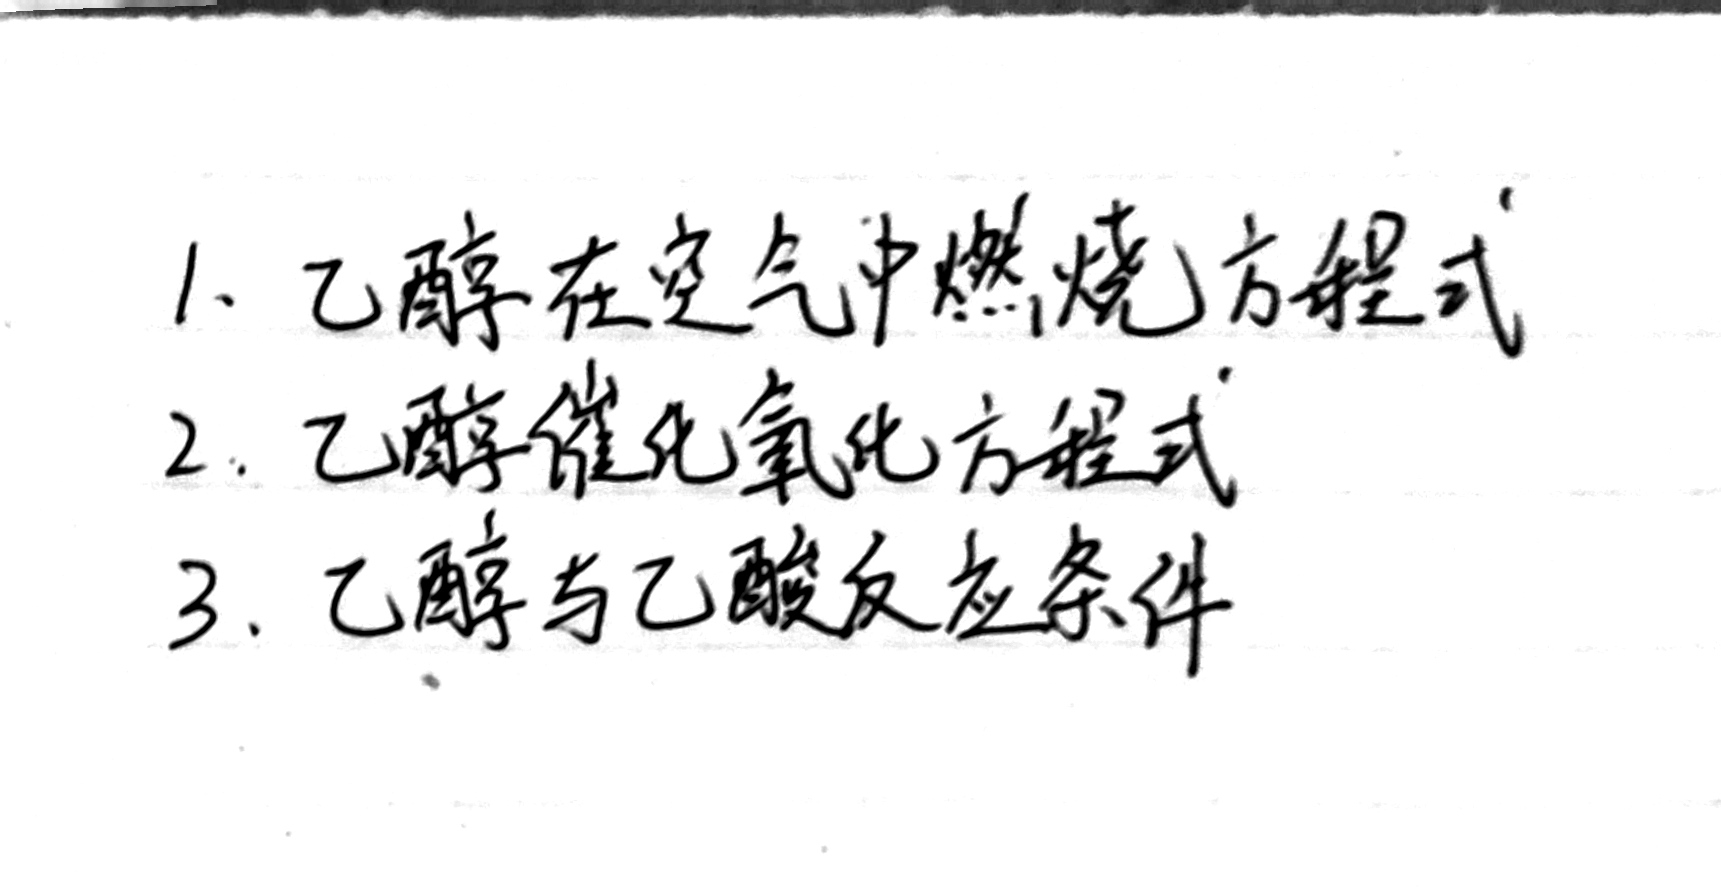 1、乙醇在空气中燃烧方程式
2.乙醇催化氧化方程式
3.乙醇与乙酸反应条件